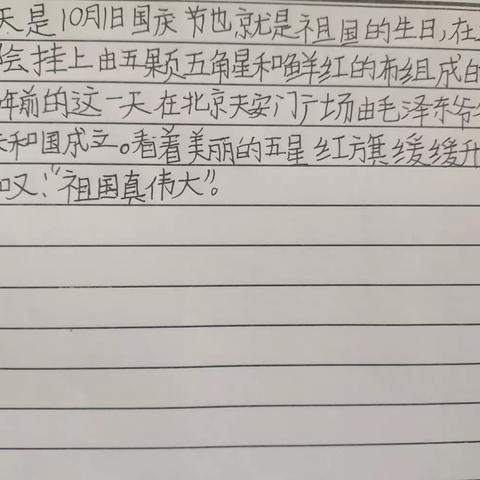 天是10月1日国庆节也就是祖国的生日,在
会挂上由五颗五角星和鲜红的布组成的
年前的这一天在北京天安门广场由毛泽东爷
和国成立。看着美丽的五星红旗缓缓升
叹:“祖国真伟大”。